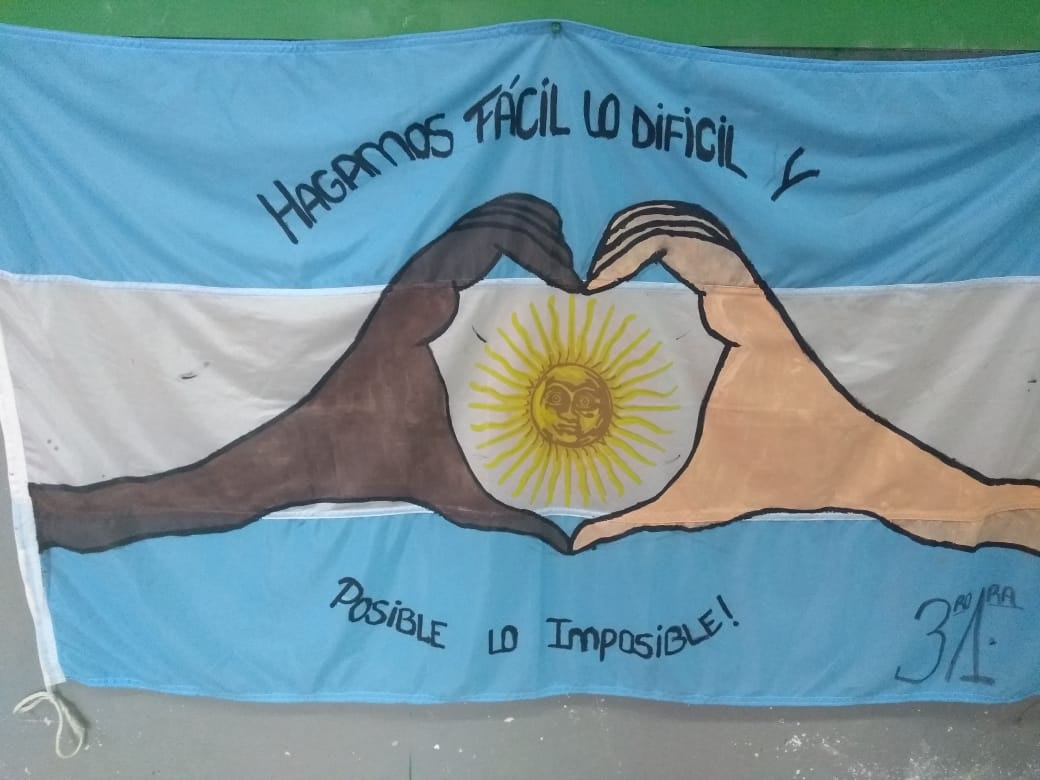 HAGAMOS FÁCIL LO DIFICIL Y
POSIBLE LO IMPOSIBLE!
3RO 1RA